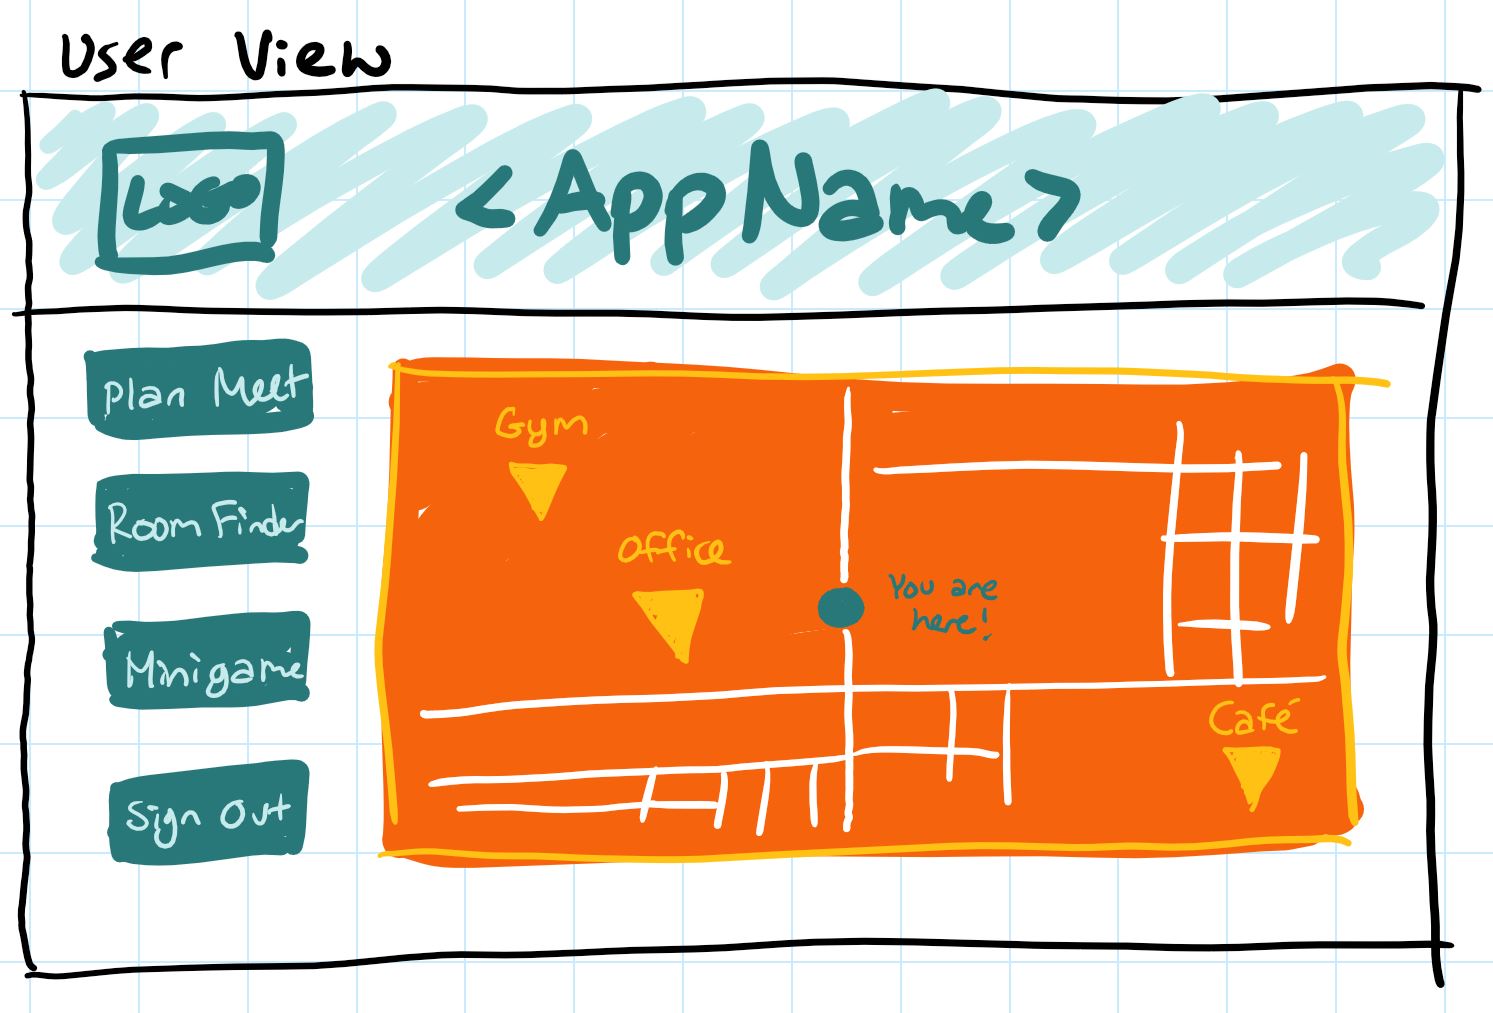 User View
LOGO
<AppName>
Plan Meet
Room Finder
Minigame
Sign Out
Gym
Office
You are
here!
Café